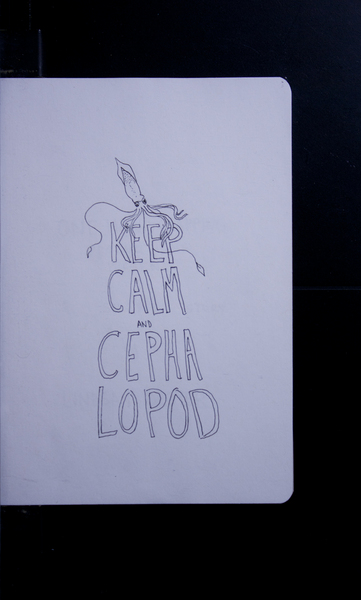 KEEP
CALM
AND
CEPHA
LOPOD